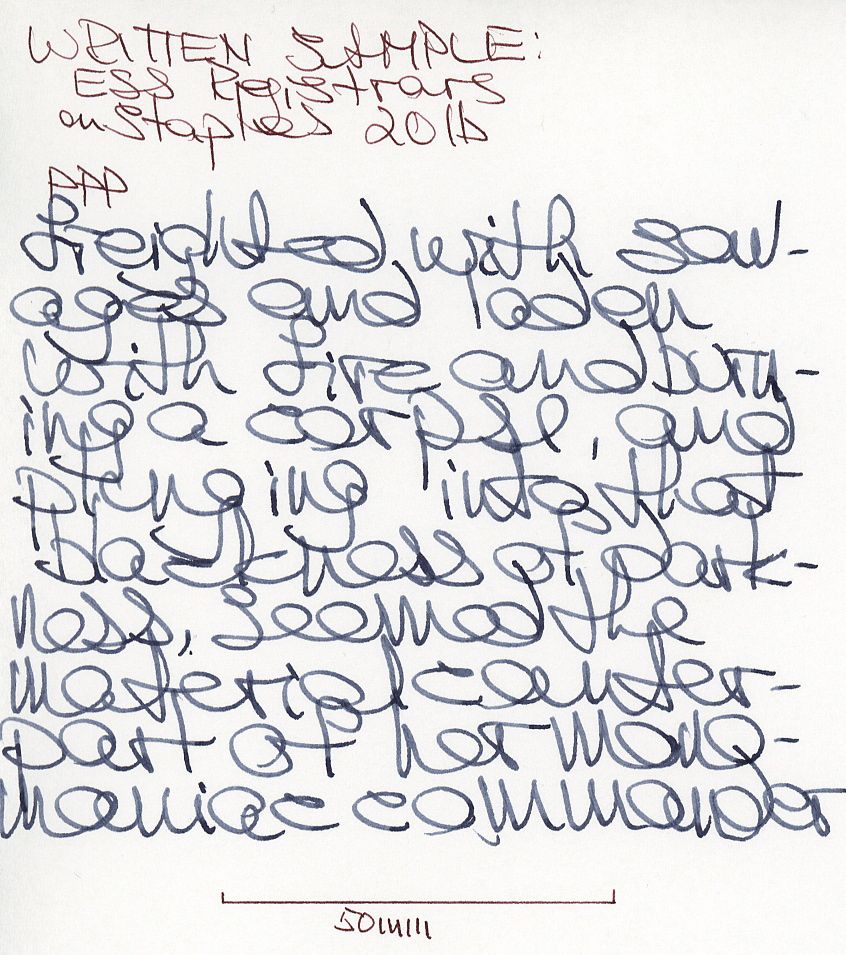 WRITTEN SAMPLE:
ESS Registrars
on Staples 20lb
PPP
freighted with sav-
ages and laden
with fire and burn-
ing a corpse, and
plunging into that
blackness of dark-
ness, seemed the
material counter-
part of her mono-
maniac commander
50mm